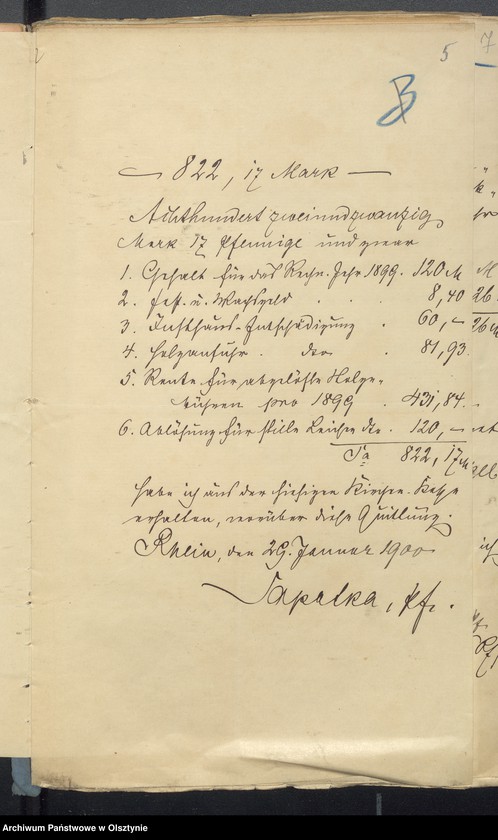 5
B
822, 17 Mark
Achthundert zweiundzwanzig
Mark 17 Pfennige und zwar
1. Gehalt für das Rechn. Jahr 1899. 120 M
2. Fest- u. Wachsgeld . . 8,40
3. Insthaus-Entschädigung . 60,–
4. Holzanfuhr . dto . 81,93.
5. Rente für abgelöste Holzge-
bühren pro 1899 . 431,84.
6. Ablösung für stille Leichen dto. 120,–
Sa 822, 17 M
habe ich aus der hiesigen Kirchen-Kasse
erhalten, worüber diese Quittung.
Rhein, den 29. Januar 1900
Pf.
7
26
Archiwum Państwowe w Olsztynie